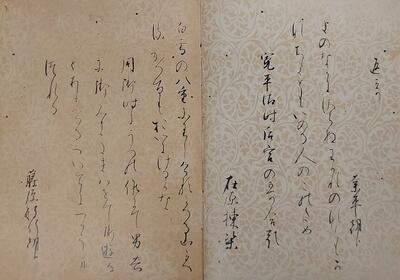 返し
業平朝臣
よのなかにさらぬわかれのなくもか
なちよもといのる人のこのため
寛平御時后宮の哥合哥
在原棟梁
白雪の八重ふりしけるかへる山か
へるかへるもおいにけるかな
同御時うへの侍にて男共
に御みきたまひて御遊な
とありけるついてにつかうま
つれる
藤原敏行朝臣